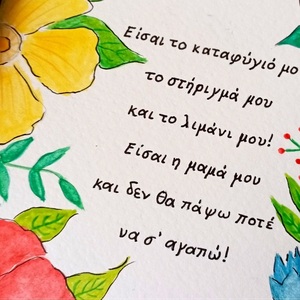 Είσαι το καταφύγιό μο
το στήριγμά μου
και το λιμάνι μου!
Είσαι η μαμά μου
και δεν θα πάψω ποτέ
να σ' αγαπώ!